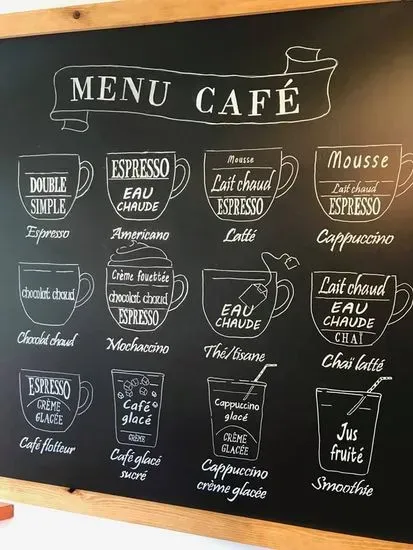 MENU CAFÉ
DOUBLE
SIMPLE
Espresso
ESPRESSO
EAU
CHAUDE
Americano
Mousse
Lait chaud
ESPRESSO
Latté
Mousse
Lait chaud
ESPRESSO
Cappuccino
chocolat chaud
Chocolat chaud
Crème fouettée
chocolat chaud
ESPRESSO
Mochaccino
EAU
CHAUDE
Thé/tisane
Lait chaud
EAU
CHAUDE
CHAÏ
Chaï latté
ESPRESSO
CRÈME
GLACÉE
Café flotteur
Café
glacé
CRÈME
Café glacé
sucré
Cappuccino
glacé
CRÈME
GLACÉE
Cappuccino
crème glacée
Jus
fruité
Smoothie